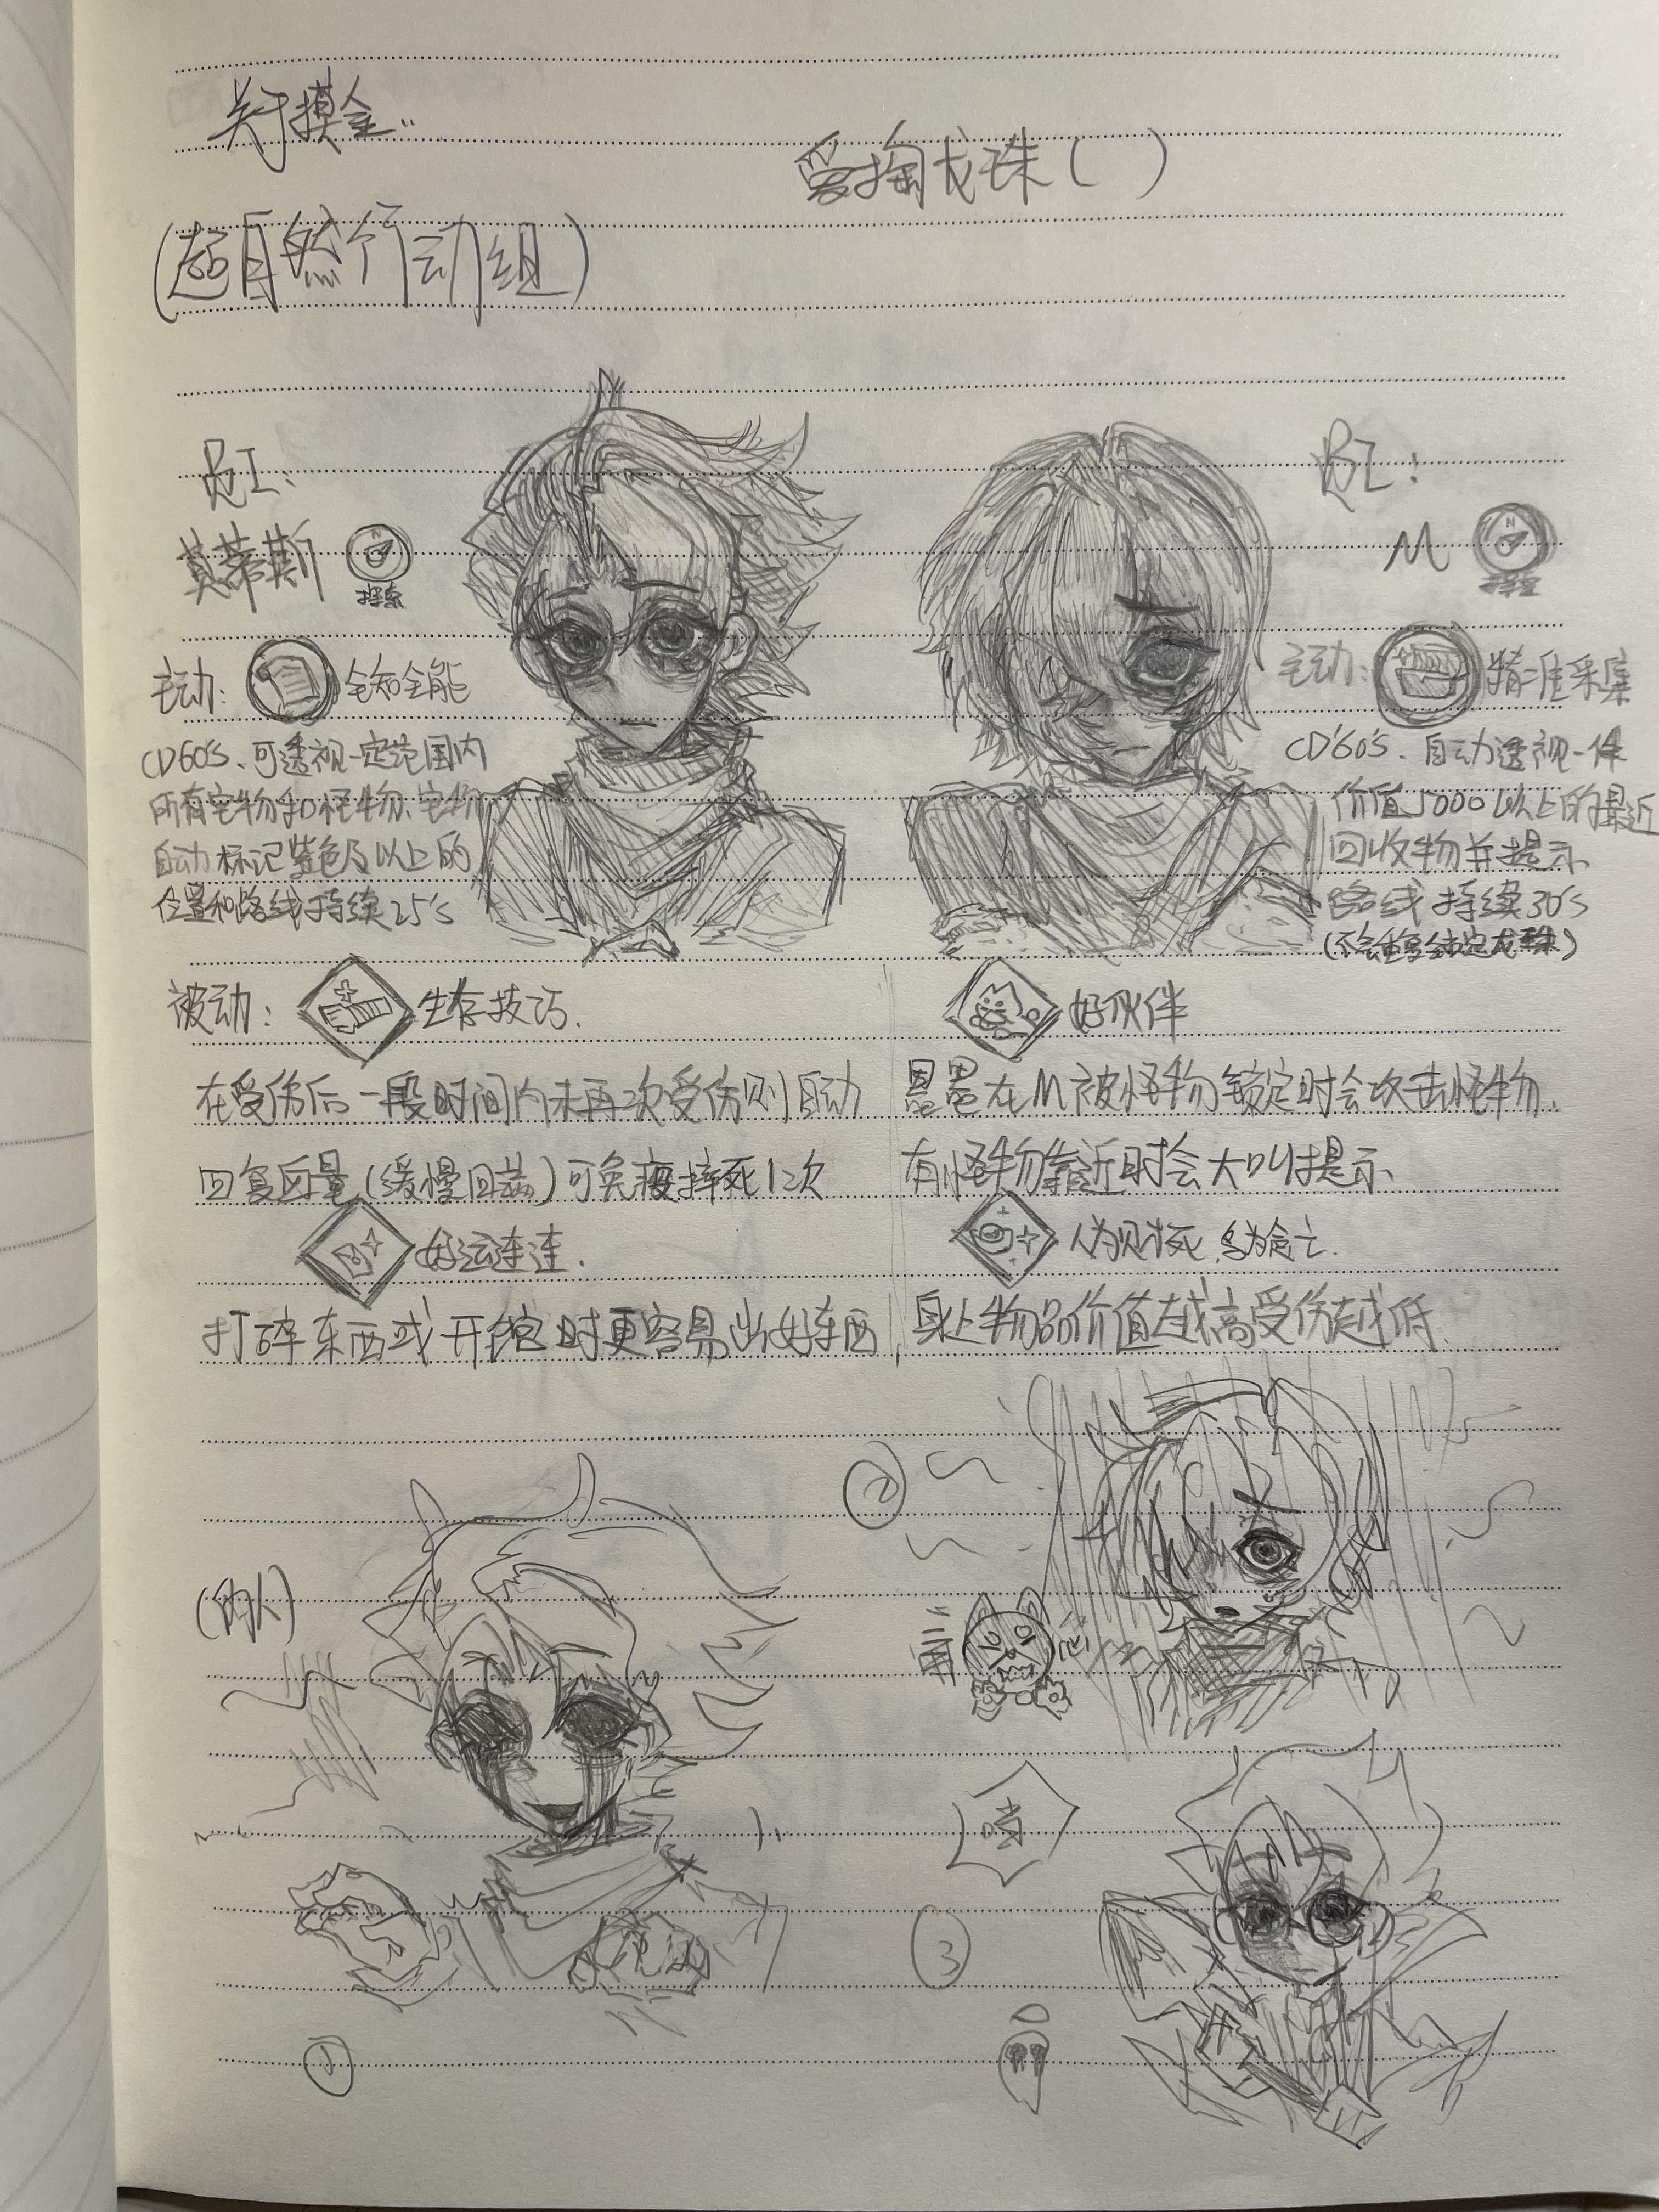 关于摸金..
爱掏龙珠（ ）
（超自然行动组）
员工：
莫蒂斯
探索
主动： 全知全能
CD60's、可透视一定范围内
所有宝物和怪物、宝物
自动标记紫色及以上的
位置和路线持续25's
员工：
M
探宝
主动： 精准采集
CD'60's．自动透视一件
价值5000以上的最近
回收物并提示
路线持续30's
（不会重复锁定龙珠）
被动： 生存技巧.
在受伤后一段时间内未再次受伤则自动
回复血量（缓慢回满）可免疫摔死1次
好运连连.
打碎东西或开锁时更容易出好东西
好伙伴
在M被怪物锁定时会攻击怪物.
有怪物靠近时会大叫提示.
人为财死,鸟为食亡.
身上物品价值越高受伤越低.
（内人）
①
②
③
N
N